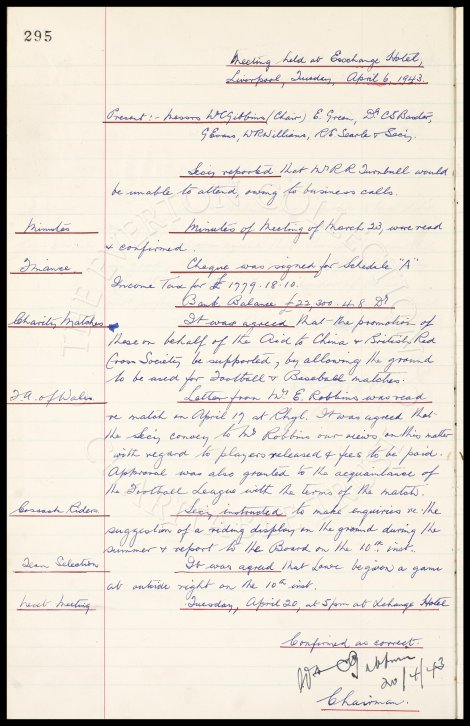 295
Meeting held at Exchange Hotel,
Liverpool, Tuesday, April 6, 1943.
Present :- Messrs W.C. Gibbins (Chair) E. Green, Dr C.S. Baxter,
G Evans, W.R. Williams, R.E. Searle & Secy.
Secy reported that Mr R.R. Turnbull would
be unable to attend, owing to business calls.
Minutes Minutes of Meeting of March 23, were read
& confirmed.
Finance. Cheque was signed for Schedule "A"
Income Tax for £1779.18.10.
Bank Balance £22,300.4.8 Dr.
Charity Matches It was agreed that the promotion of
those on behalf of the Aid to China & British Red
Cross Society be supported, by allowing the ground
to be used for Football & Baseball matches.
F.A. of Wales Letter from Mr E. Robbins was read
re match on April 17 at Rhyl. It was agreed that
the Secy convey to Mr Robbins our views on this matter
with regard to players released & fees to be paid.
Approval was also granted to the acquaintance of
the Football League with the terms of the match.
Cossack Riders Secy instructed to make enquiries re the
suggestion of a riding display on the ground during the
summer & report to the Board on the 10th inst.
Team Selection It was agreed that Lowe be given a game
at outside right on the 10th inst.
Next Meeting Tuesday, April 20, at 5pm at Exchange Hotel
Confirmed as correct.
20/4/43
Chairman.
THE EVERTON COLLECTION